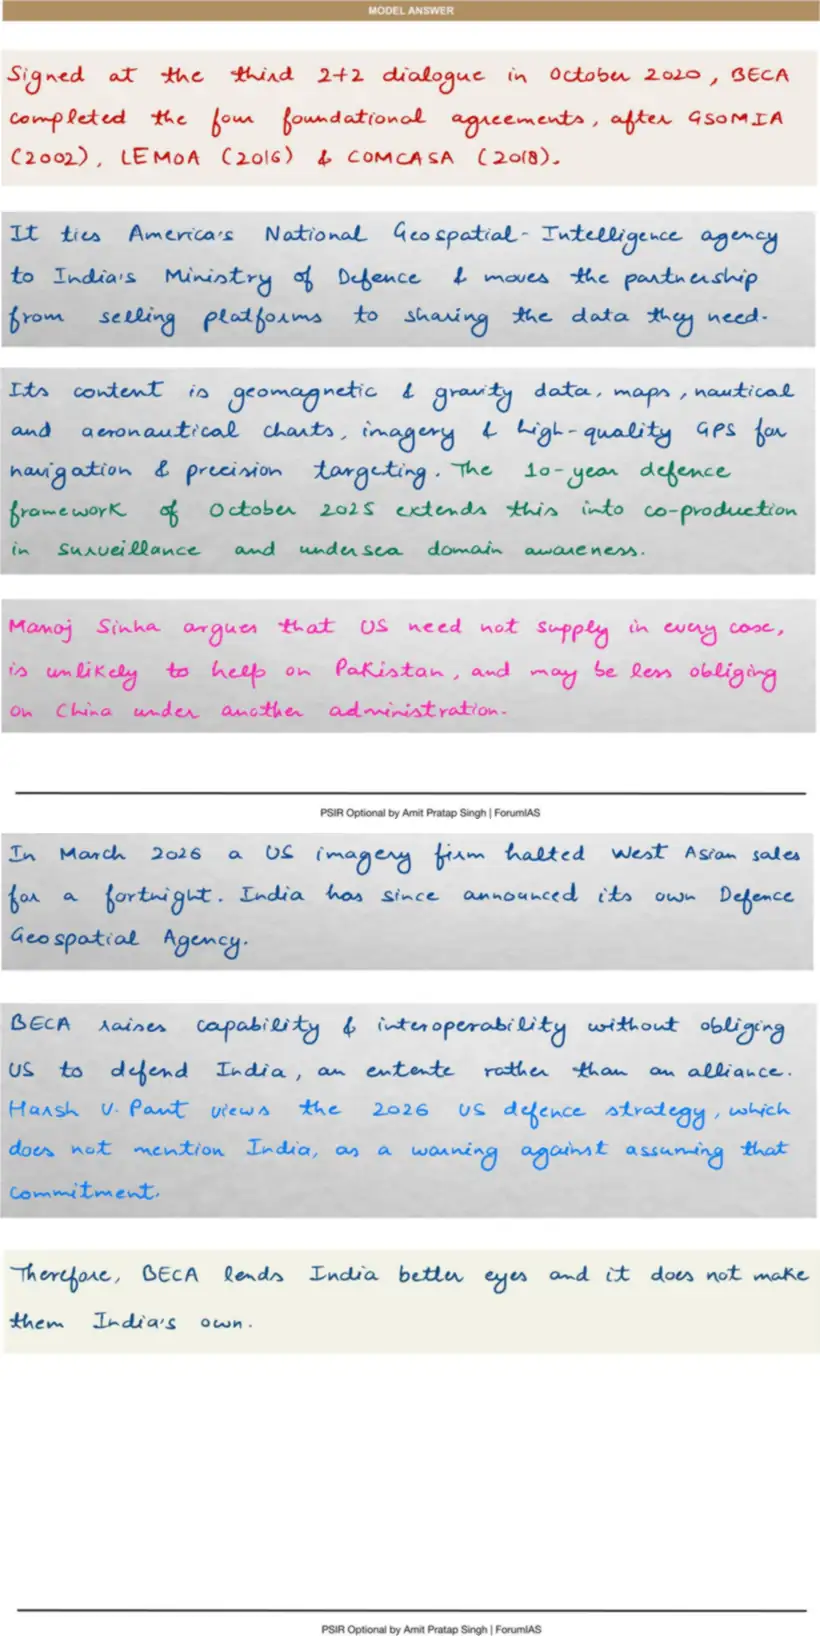 MODEL ANSWER
Signed at the third 2+2 dialogue in October 2020, BECA
completed the four foundational agreements, after GSOMIA
(2002), LEMOA (2016) & COMCASA (2018).
It ties America's National Geospatial-Intelligence agency
to India's Ministry of Defence & moves the partnership
from selling platforms to sharing the data they need.
Its content is geomagnetic & gravity data, maps, nautical
and aeronautical charts, imagery & high-quality GPS for
navigation & precision targeting. The 10-year defence
framework of October 2025 extends this into co-production
in surveillance and undersea domain awareness.
Manoj Sinha argues that US need not supply in every case,
is unlikely to help on Pakistan, and may be less obliging
on China under another administration.
PSIR Optional by Amit Pratap Singh | ForumIAS
In March 2026 a US imagery firm halted West Asian sales
for a fortnight. India has since announced its own Defence
Geospatial Agency.
BECA raises capability & interoperability without obliging
US to defend India, an entente rather than an alliance.
Harsh V. Pant views the 2026 US defence strategy, which
does not mention India, as a warning against assuming that
commitment.
Therefore, BECA lends India better eyes and it does not make
them India's own.
PSIR Optional by Amit Pratap Singh | ForumIAS